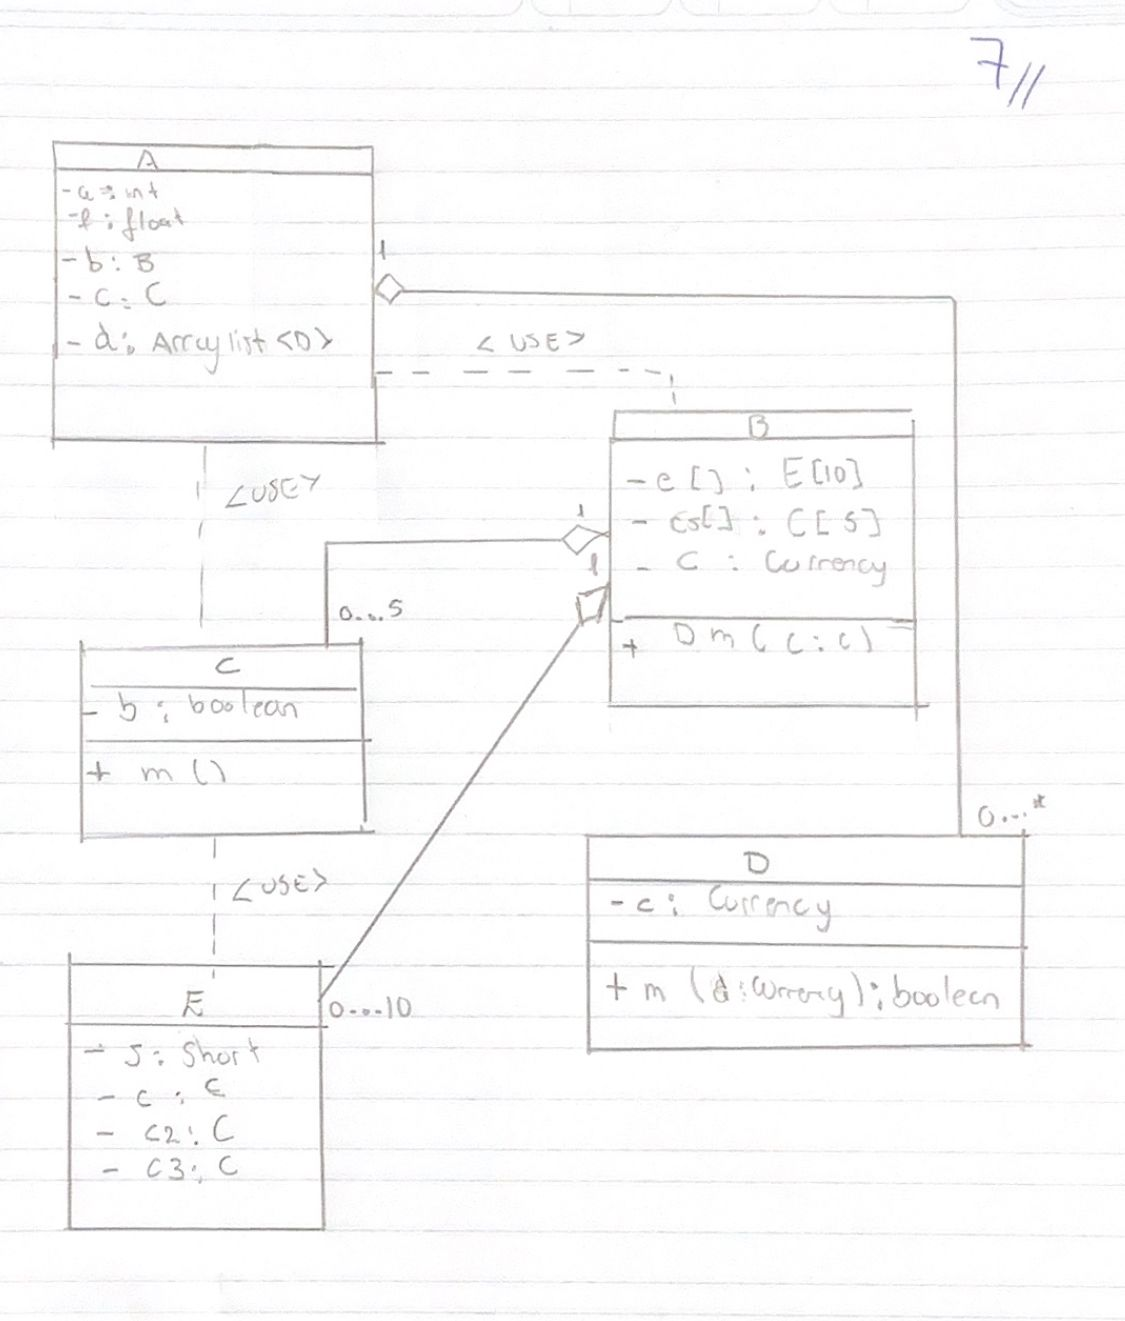 7//
A
- a : int
- f : float
- b : B
- c : C
- d : Arraylist <D>
1
< USE >
B
- e [] : E[10]
- cs[] : C[5]
- c : Currency
+ D m ( c : c )
<USE>
1
1
0...5
C
- b : boolean
+ m ()
0...*
D
- c : Currency
+ m ( d : Currency ) : boolean
<USE>
E
0...10
- s : Short
- c : C
- c2 : C
- c3 : C